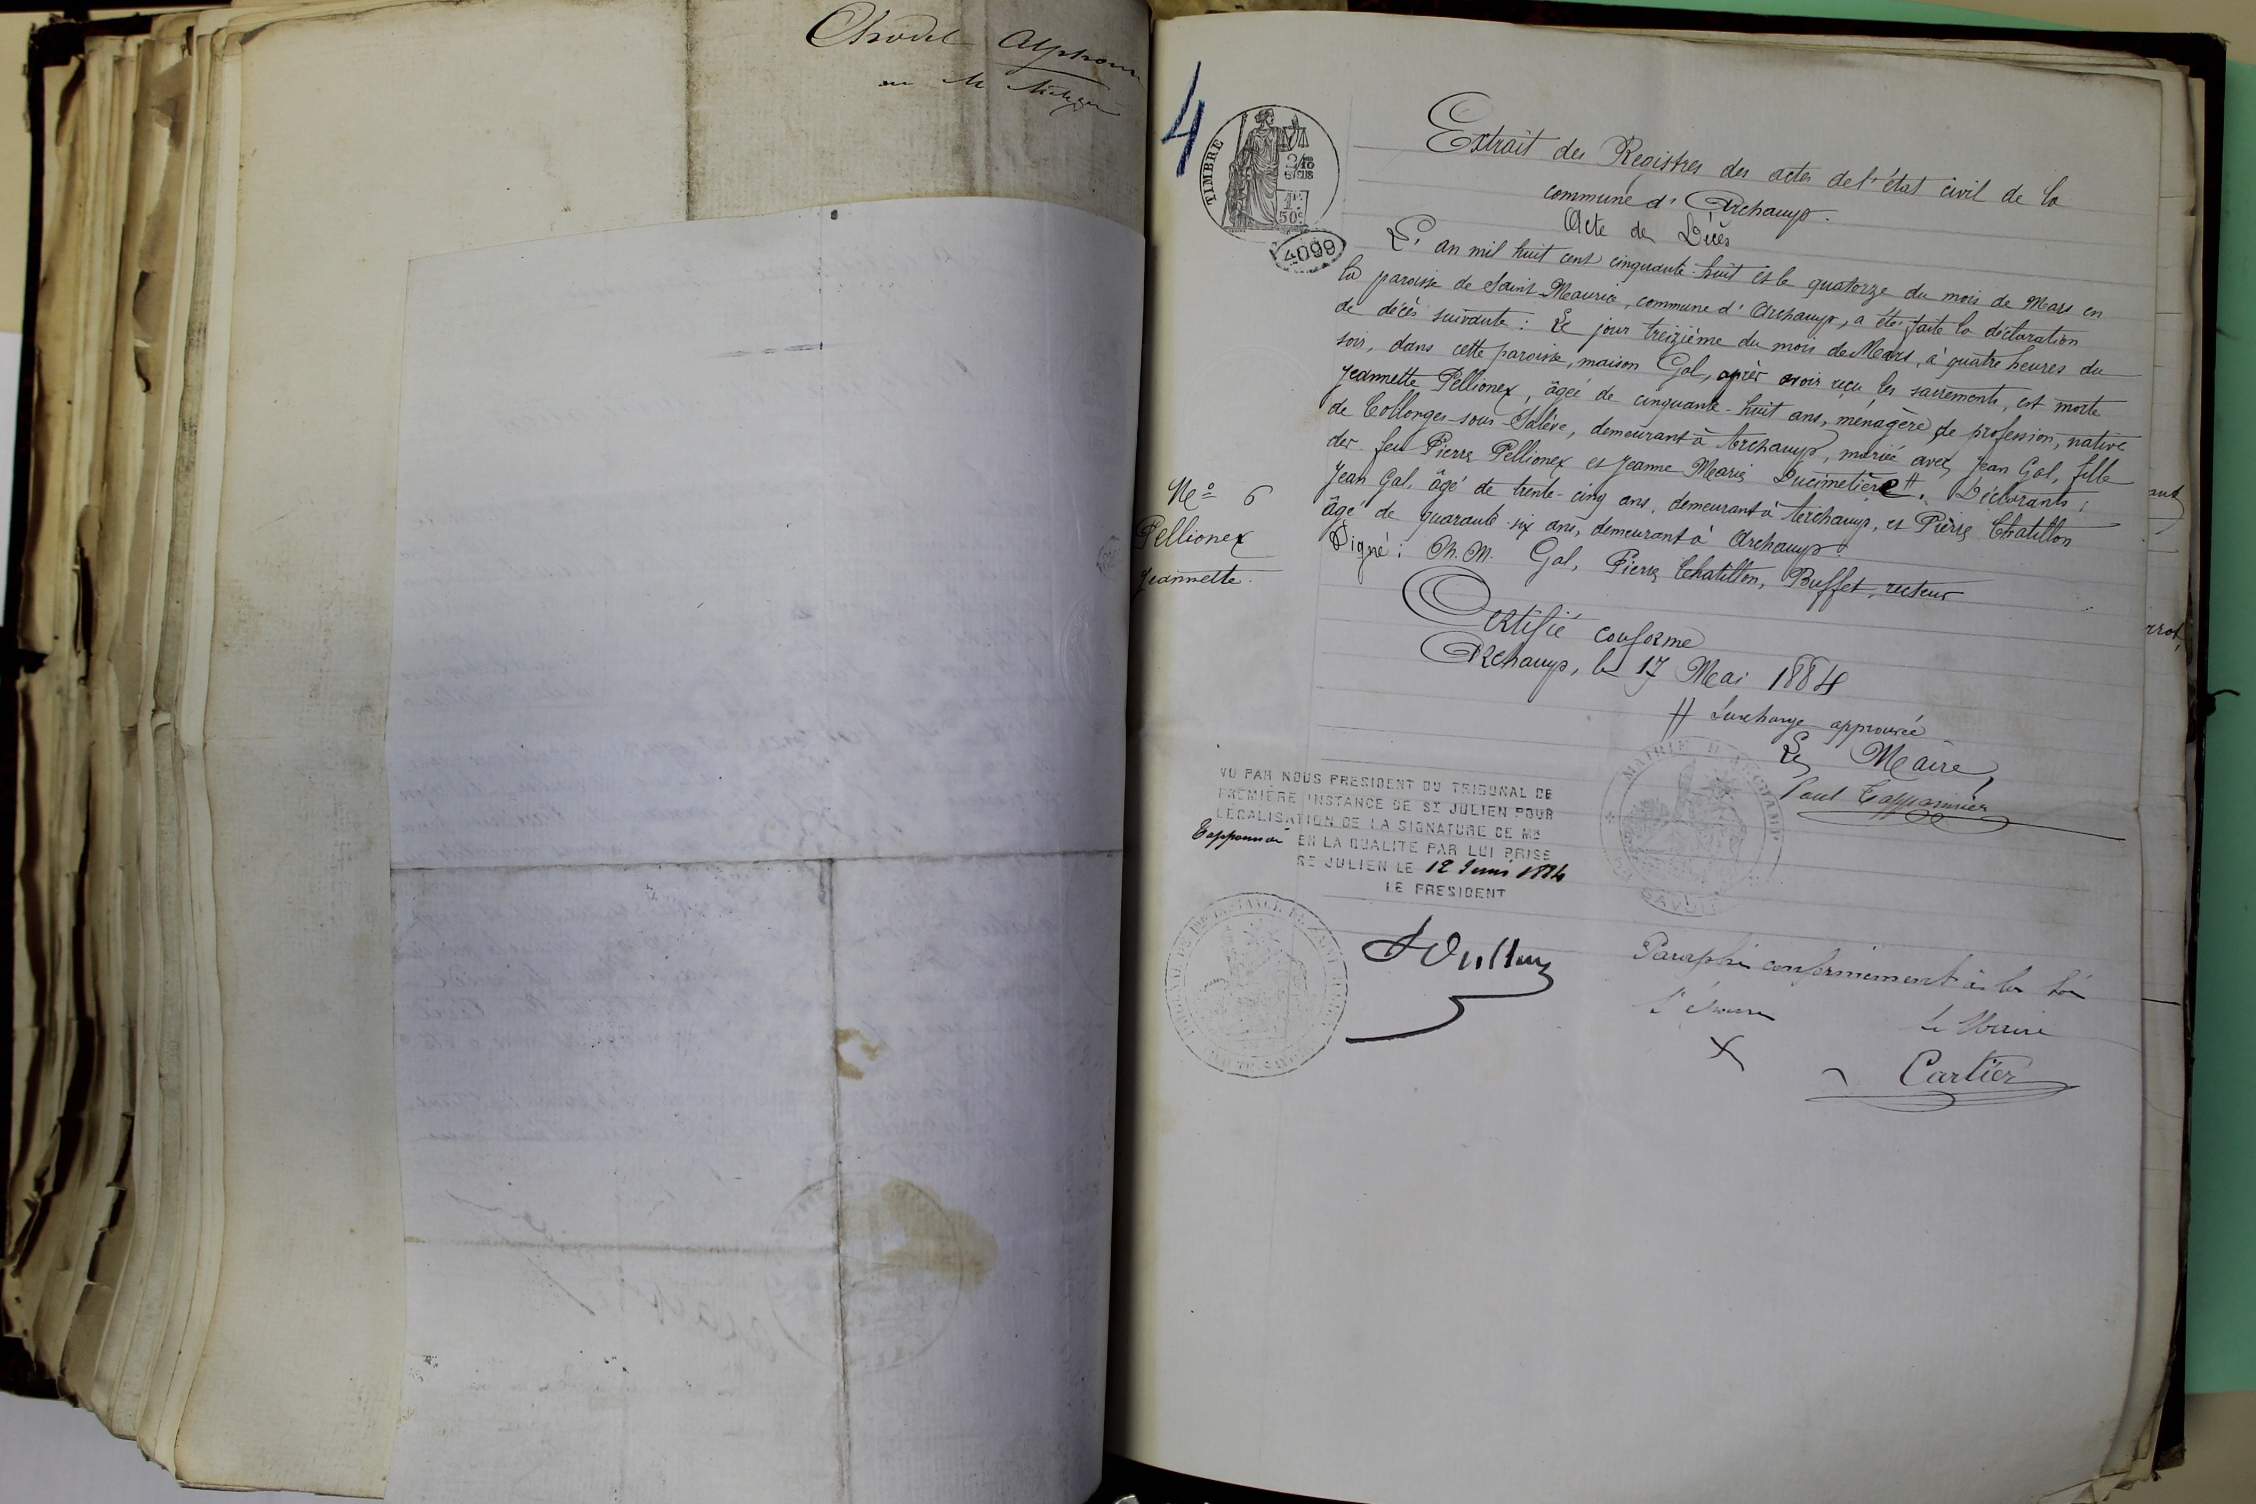 Chodel Alphonse
4
TIMBRE
2/10
EN SUS
1F
50C
4099
Extrait des Registres des actes de l'état civil de la
commune d'Archamp.
Acte de Décès
L'an mil huit cent cinquante-huit et le quatorze du mois de Mars en
la paroisse de Saint-Maurice, commune d'Archamp, a été faite la déclaration
de décès suivante : Le jour treizième du mois de Mars, à quatre heures du
soir, dans cette paroisse, maison Gal, après avoir reçu les sacrements, est morte
Jeannette Pellionex, âgée de cinquante-huit ans, ménagère de profession, native
de Collonges-sous-Salève, demeurant à Archamp, mariée avec Jean Gal, fille
der feu Pierre Pellionex et Jeanne Marie Ducimetière #. Déclarants :
Jean Gal, âgé de trente-cinq ans, demeurant à Archamp, et Pierre Chatillon
âgé de quarante-six ans, demeurant à Archamp.
Signé : Gal, Pierre Chatillon, Buffet, recteur
No 6
Pellionex
Jeannette.
Certifié conforme
Archamp, le 17 Mai 1884
# Surcharge approuvée
Le Maire,
Paul Tapponnier
MAIRIE D'ARCHAMP
SAVOIE
VU PAR NOUS PRESIDENT DU TRIBUNAL DE
PREMIÈRE INSTANCE DE ST JULIEN POUR
LEGALISATION DE LA SIGNATURE DE MR
Tapponnier EN LA QUALITE PAR LUI PRISE
ST JULIEN LE 12 Juin 1884
LE PRESIDENT
Paraphé conformément à la loi
L'épouse Le Maire
X Cartier